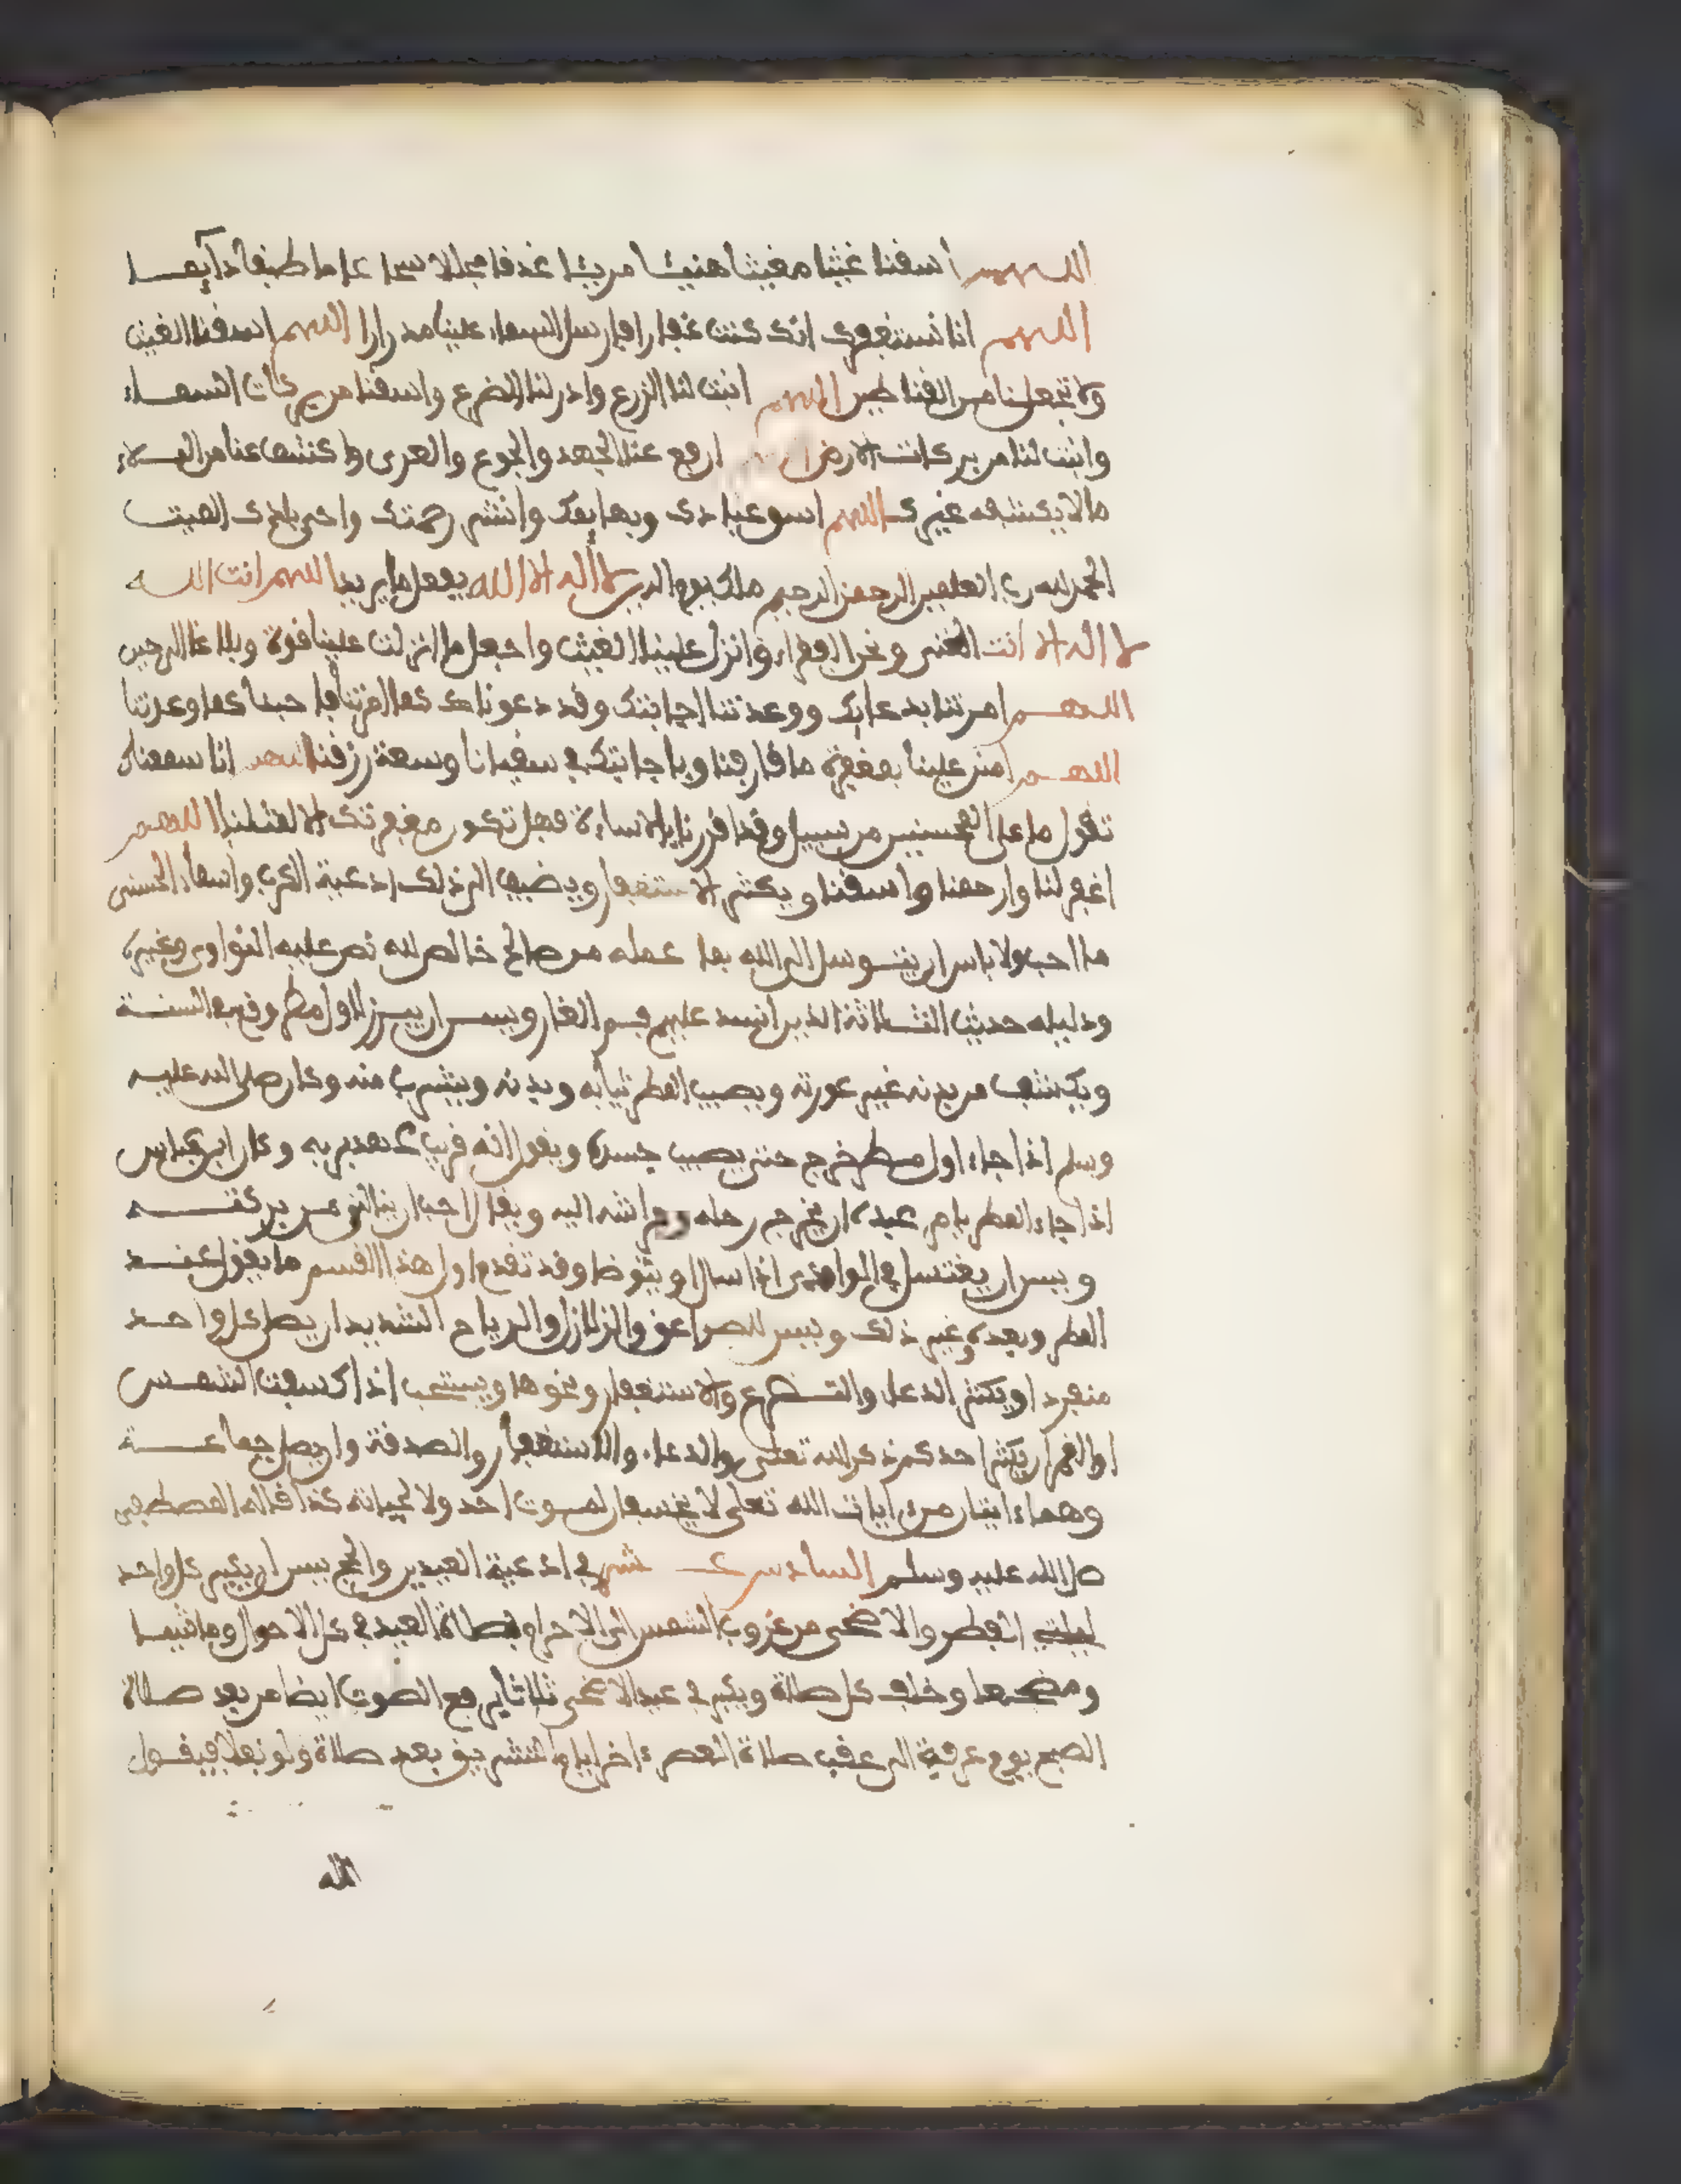 اللهم أسقنا غيثا مغيثا هنيئا مريئا غدقا مجللا سحا عاما طبقا دآيما
اللهم انا نستغفرك انك كنت غفارا فارسل السماء علينا مدرارا اللهم اسقنا الغيث
ولا تجعلنا من القنطين اللهم انبت لنا الزرع وادر لنا الضرع واسقنا من بركات السماء
وانبت لنا من بركات الارض ارفع عنا الجهد والجوع والعرى واكشف عنا من البلاء
ما لا يكشفه غيرك اللهم اسق عبادك وبهايمك وانشر رحمتك واحي بلدك الميت
الحمد لله رب العلمين الرحمن الرحيم ملك يوم الدين لا إله الا الله يفعل ما يريد اللهم انت الله
لا اله الا انت الغني ونحن الفقراء وانزل علينا الغيث واجعل ما انزلت علينا قوة وبلاغا الى حين
اللهم امرتنا بدعايك ووعدتنا اجابتك وقد دعوناك كما امرتنا فاجبنا كما وعدتنا
اللهم امنن علينا بمغفرة ما قارفنا وباجابتك في سقيانا وسعة رزقنا اللهم انا سمعناك
تقول ما على المحسنين من سبيل وقد اقررنا بالاساءة فهل تكون مغفرتك الا لمثلنا اللهم
اغفر لنا وارحمنا واسقنا ويكثر الاستغفار ويضيف الى ذلك ادعية الكرب واسماء الحسنى
ما احب ولا باس ان يتوسل الى الله بما عمله من صالح خالص لله نص عليه النواوي وغيره
ودليله حديث الثلاثة الذين انسد عليهم فم الغار ويسن ان يبرز لاول مطر وقع في السنة
ويكشف من بدنه غير عورته ويصيب المطر ثيابه وبدنه ويشرب منه وكان صلى الله عليه
وسلم اذا جاء اول مطر خرج حتى يصيب جسده ويقول انه قريب عهد بربه وكان ابن عباس
اذا جاء المطر يامر عبده ان يخرج رحله وفراشه اليه ويقال احب ان ينالني من بركته
ويسن ان يغتسل في الوادي اذا سال او يتوضا وقد تقدم اول هذا القسم ما يقول عند
المطر وبعده وغير ذلك ويسن للصواعق والزلازل والرياح الشديد ان يصلي كل واحد
منفردا ويكثر الدعاء والتضرع والاستغفار ونحوها ويستحب اذا كسفت الشمس
او القمر ان يكثر احدكم ذكر الله تعلى والدعاء والاستغفار والصدقة وان يصلي جماعة
وهما ءايتان من ءايات الله تعلى لا يخسفان لموت احد ولا لحياته كذا قاله المصطفى
صلى الله عليه وسلم السادس عشر في ادعية العيدين والحج يسن ان يكبر كل واحد
ليلتي الفطر والاضحى من غروب الشمس الى الاحرام بصلاة العيد في كل الاحوال وماشيا
ومضجعا وخلف كل صلاة ويكبر في عيد الاضحى ثلاثا برفع الصوت ايضا من بعد صلاة
الصبح يوم عرفة الى عقب صلاة العصر ءاخر ايام التشريق بعد صلاة ولو نفلا فيقول
الله